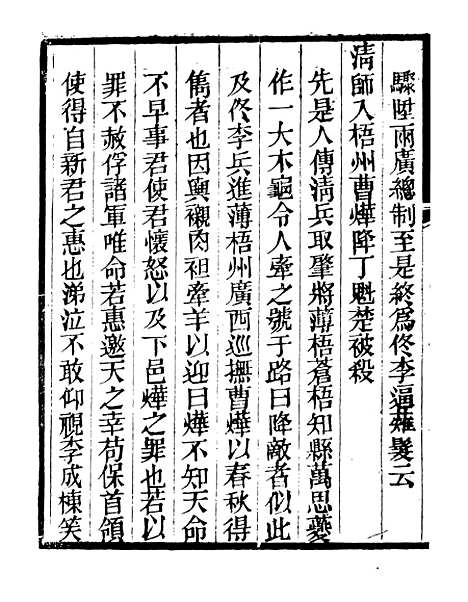 驟陞兩廣總制至是終爲佟李逼薙髮云
淸師入梧州曹燁降丁魁楚被殺
先是人傳淸兵取肇將薄梧蒼梧知縣萬思夔
作一大木龜令人牽之號于路曰降敵者似此
及佟李兵進薄梧州廣西巡撫曹燁以春秋得
雋者也因輿櫬肉袒牽羊以迎曰燁不知天命
不早事君使君懷怒以及下邑燁之罪也若以
罪不赦俘諸軍唯命若惠邀天之幸苟保首領
使得自新君之惠也涕泣不敢仰視李成棟笑